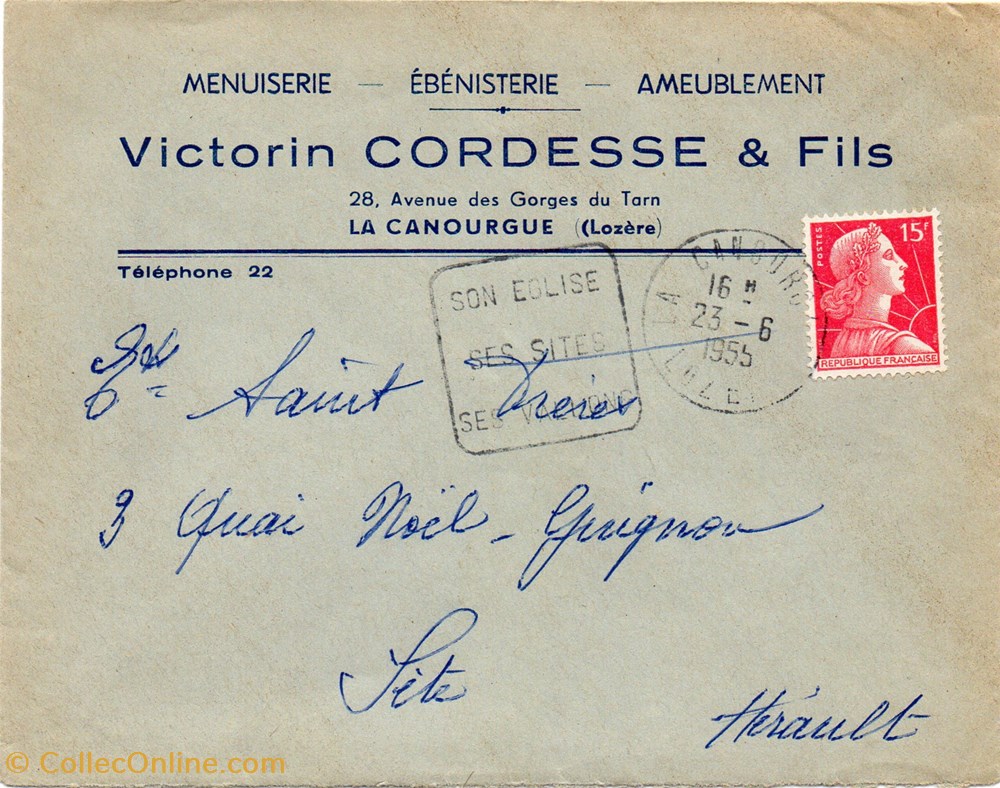 MENUISERIE — ÉBÉNISTERIE — AMEUBLEMENT
Victorin CORDESSE & Fils
28, Avenue des Gorges du Tarn
LA CANOURGUE (Lozère)
Téléphone 22
POSTES
15F
REPUBLIQUE FRANÇAISE
LA CANOURG
16 H
23 - 6
1955
LOZE
SON EGLISE
SES SITES
SES VALLONS
Ets Saint Frères
3 Quai Noël - Guignon
Sète
Hérault
© CollecOnline.com